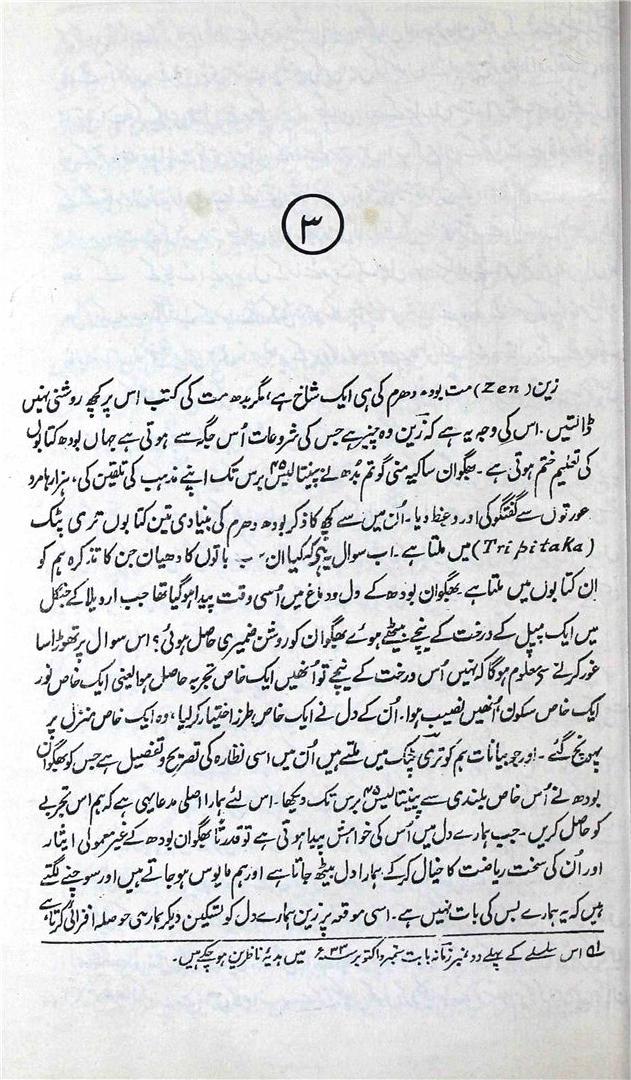 ۳
زین (Zen) مت بودھ دھرم کی ہی ایک شاخ ہے، مگر بدھ مت کی کتب اس پر کچھ روشنی نہیں
ڈالتیں۔ اس کی وجہ یہ ہے کہ زین وہ چیز ہے جس کی شروعات اُس جگہ سے ہوتی ہے جہاں بودھ کتابوں
کی تعلیم ختم ہوتی ہے۔ بھگوان ساکیہ منی گوتم بُدھ نے پینتالیس ۴۵ برس تک اپنے مذہب کی تلقین کی، ہزارہا مرد
عورتوں سے گفتگو کی اور وعظ دیا۔ اُن میں سے کچھ کا ذکر بودھ دھرم کی بنیادی تین کتابوں تری پٹک
(Tripitaka) میں ملتا ہے۔ اب سوال یہ کہ کیا ان سب باتوں کا دھیان جن کا تذکرہ ہم کو
اِن کتابوں میں ملتا ہے بھگوان بودھ کے دل و دماغ میں اُسی وقت پیدا ہو گیا تھا جب اروبلا کے جنگل
میں ایک پیپل کے درخت کے نیچے بیٹھے ہوئے بھگوان کو روشن ضمیری حاصل ہوئی؟ اس سوال پر تھوڑا سا
غور کرنے سے معلوم ہوگا کہ نہیں اُس درخت کے نیچے تو اُنھیں ایک خاص تجربہ حاصل ہوا یعنی ایک خاص نور
ایک خاص سکون اُنھیں نصیب ہوا۔ اُن کے دل نے ایک خاص طرز اختیار کر لیا، وہ ایک خاص منزل پر
پہونچ گئے۔ اور جو بیانات ہم کو تری پٹک میں ملتے ہیں اُن میں اسی نظارہ کی تصریح و تفصیل ہے جس کو بھگوان
بودھ نے اُس خاص بلندی سے پینتالیس ۴۵ برس تک دیکھا۔ اس لئے ہمارا اصلی مدعا یہی ہے کہ ہم اس تجربے
کو حاصل کریں۔ جب ہمارے دل میں اُس کی خواہش پیدا ہوتی ہے تو قدرتاً بھگوان بودھ کے غیر معمولی ایثار
اور اُن کی سخت ریاضت کا خیال کرکے ہمارا دل بیٹھ جاتا ہے اور ہم مایوس ہو جاتے ہیں اور سوچنے لگتے
ہیں کہ یہ ہمارے بس کی بات نہیں ہے۔ اسی موقعہ پر زین ہمارے دل کو تسکین دیکر ہماری حوصلہ افزائی کرتا ہے
۱؎ اس سلسلے کے پہلے دو نمبر زمانہ بابت ستمبر و اکتوبر ۳۳ء میں ہدیۂ ناظرین ہو چکے ہیں۔